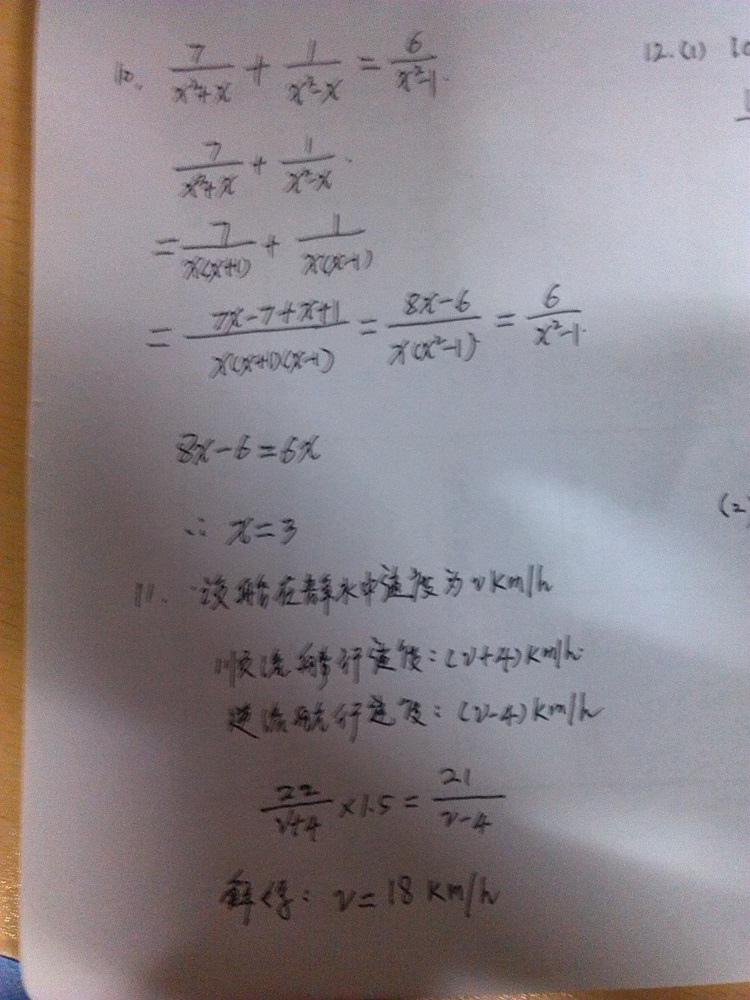 10. 7/(x²+x) + 1/(x²-x) = 6/(x²-1).
7/(x²+x) + 1/(x²-x).
= 7/(x(x+1)) + 1/(x(x-1))
= (7x-7+x+1)/(x(x+1)(x-1)) = (8x-6)/(x(x²-1)) = 6/(x²-1).
8x-6=6x
∴ x=3
11. 设船在静水中速度为vkm/h
顺流航行速度:(v+4)km/h
逆流航行速度:(v-4)km/h
22/(v+4) ×1.5 = 21/(v-4)
解得: v=18 km/h
12.(1)
(2)